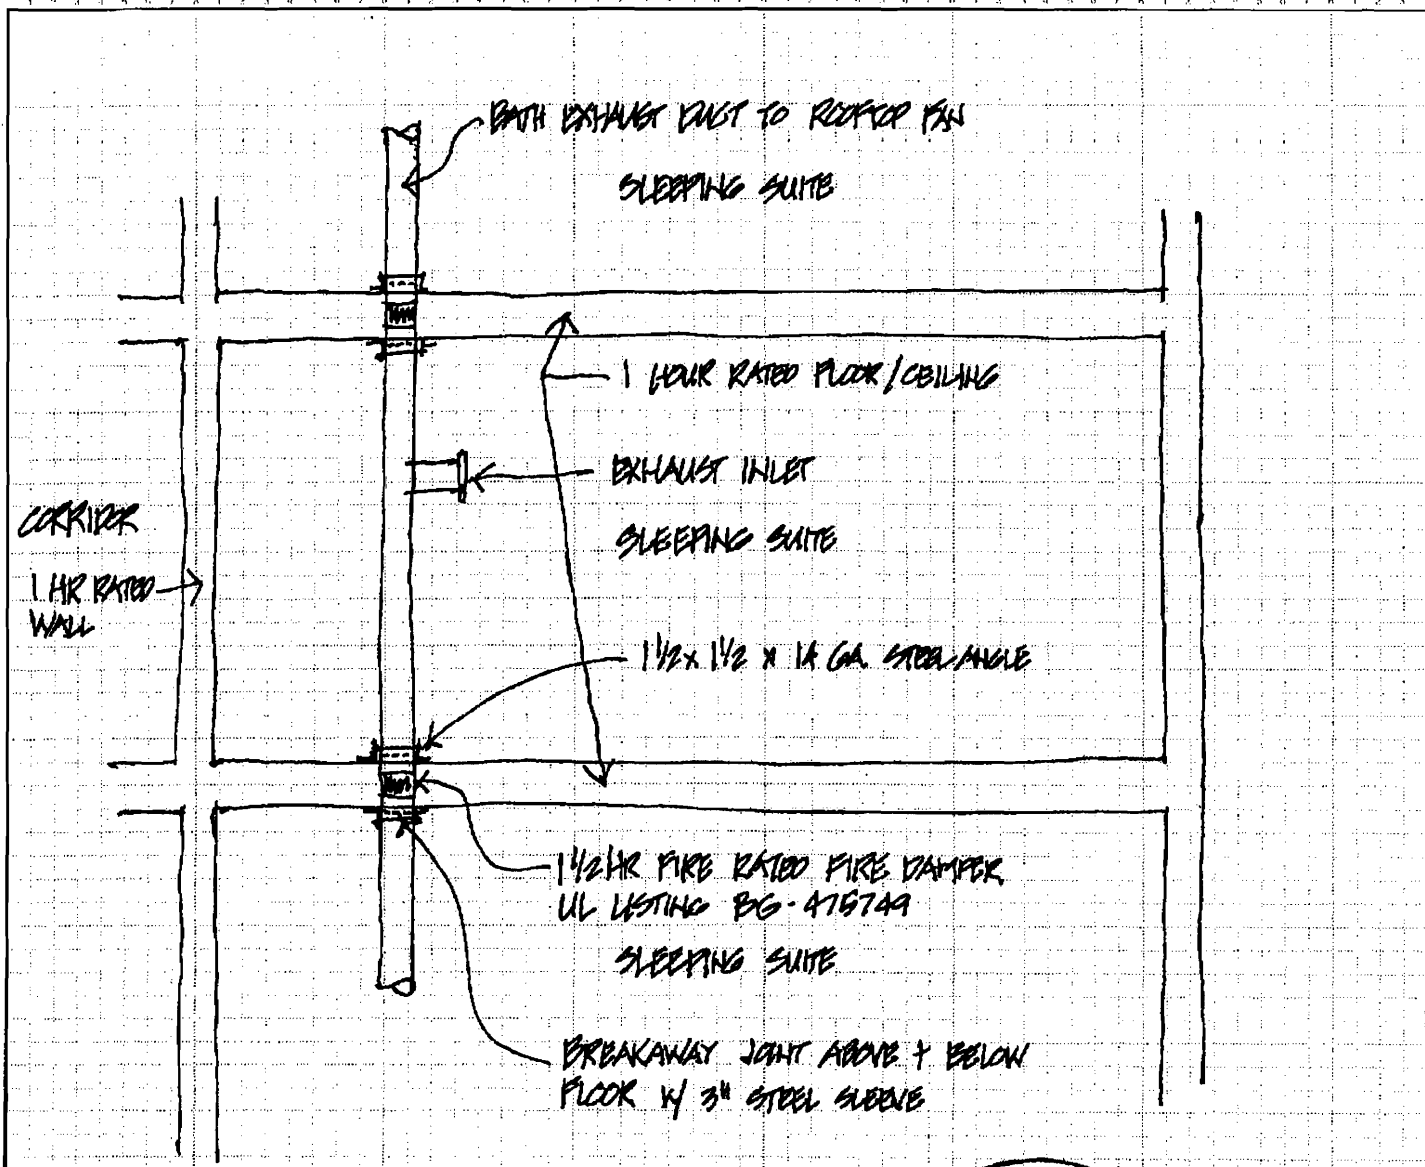 BATH EXHAUST DUCT TO ROOFTOP FAN
SLEEPING SUITE
1 HOUR RATED FLOOR/CEILING
EXHAUST INLET
SLEEPING SUITE
CORRIDOR
1 HR RATED
WALL
1 1/2 x 1 1/2 x 14 GA. STEEL ANGLE
1 1/2 HR FIRE RATED FIRE DAMPER
UL LISTING BG-475749
SLEEPING SUITE
BREAKAWAY JOINT ABOVE + BELOW
FLOOR W/ 3" STEEL SLEEVE